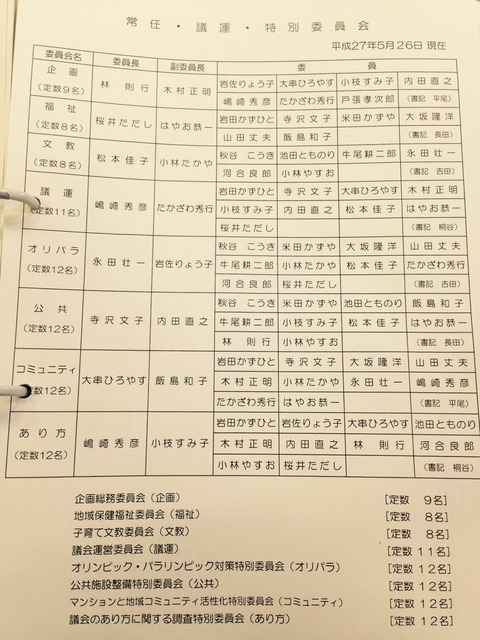 常任・議運・特別委員会
平成27年5月26日 現在
委員会名 委員長 副委員長 委員
企画 (定数9名) 林 則行 木村正明 岩佐りょう子 大串ひろやす 小枝すみ子 内田直之
嶋崎秀彦 たかざわ秀行 戸張孝次郎 (書記 平尾)
福祉 (定数8名) 桜井ただし はやお恭一 岩田かずひと 寺沢文子 米田かずや 大坂隆洋
山田丈夫 飯島和子 (書記 長田)
文教 (定数8名) 松本佳子 小林たかや 秋谷こうき 池田とものり 牛尾耕二郎 永田壮一
河合良郎 小林やすお (書記 吉田)
議運 (定数11名) 嶋崎秀彦 たかざわ秀行 岩田かずひと 寺沢文子 大串ひろやす 木村正明
小枝すみ子 内田直之 松本佳子 はやお恭一
桜井ただし (書記 桐谷)
オリパラ (定数12名) 永田壮一 岩佐りょう子 秋谷こうき 米田かずや 大坂隆洋 山田丈夫
牛尾耕二郎 小林たかや 松本佳子 たかざわ秀行
河合良郎 桜井ただし (書記 吉田)
公共 (定数12名) 寺沢文子 内田直之 秋谷こうき 米田かずや 池田とものり 飯島和子
牛尾耕二郎 小枝すみ子 松本佳子 はやお恭一
林 則行 小林やすお (書記 長田)
コミュニティ (定数12名) 大串ひろやす 飯島和子 岩田かずひと 寺沢文子 大坂隆洋 山田丈夫
木村正明 小林たかや 永田壮一 嶋崎秀彦
たかざわ秀行 はやお恭一 (書記 平尾)
あり方 (定数12名) 嶋崎秀彦 小枝すみ子 岩田かずひと 岩佐りょう子 大串ひろやす 池田とものり
木村正明 内田直之 林 則行 河合良郎
小林やすお 桜井ただし (書記 桐谷)
企画総務委員会(企画) [定数 9名]
地域保健福祉委員会(福祉) [定数 8名]
子育て文教委員会(文教) [定数 8名]
議会運営委員会(議運) [定数 11名]
オリンピック・パラリンピック対策特別委員会(オリパラ) [定数 12名]
公共施設整備特別委員会(公共) [定数 12名]
マンションと地域コミュニティ活性化特別委員会(コミュニティ) [定数 12名]
議会のあり方に関する調査特別委員会(あり方) [定数 12名]